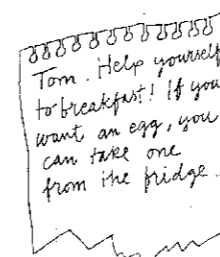 Tom. Help yourself
to breakfast! If you
want an egg, you
can take one
from the fridge.